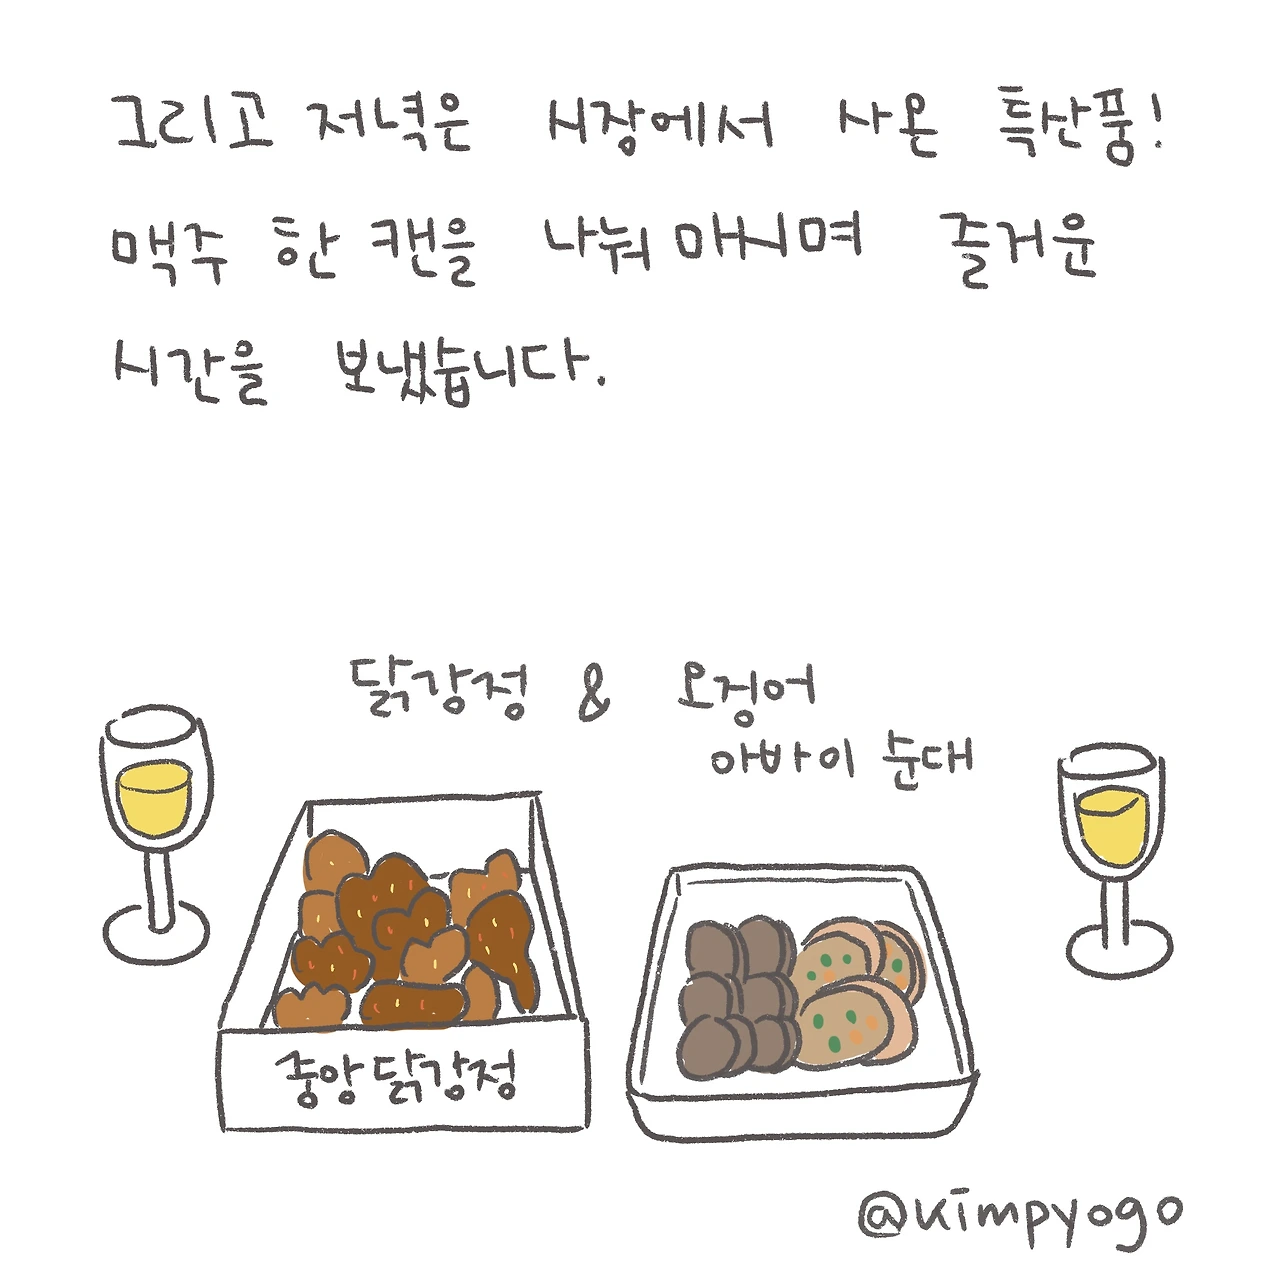 그리고 저녁은 시장에서 사온 특산품!
맥주 한 캔을 나눠 마시며 즐거운
시간을 보냈습니다.
닭강정 & 오징어
아바이 순대
중앙닭강정
@kimpyogo